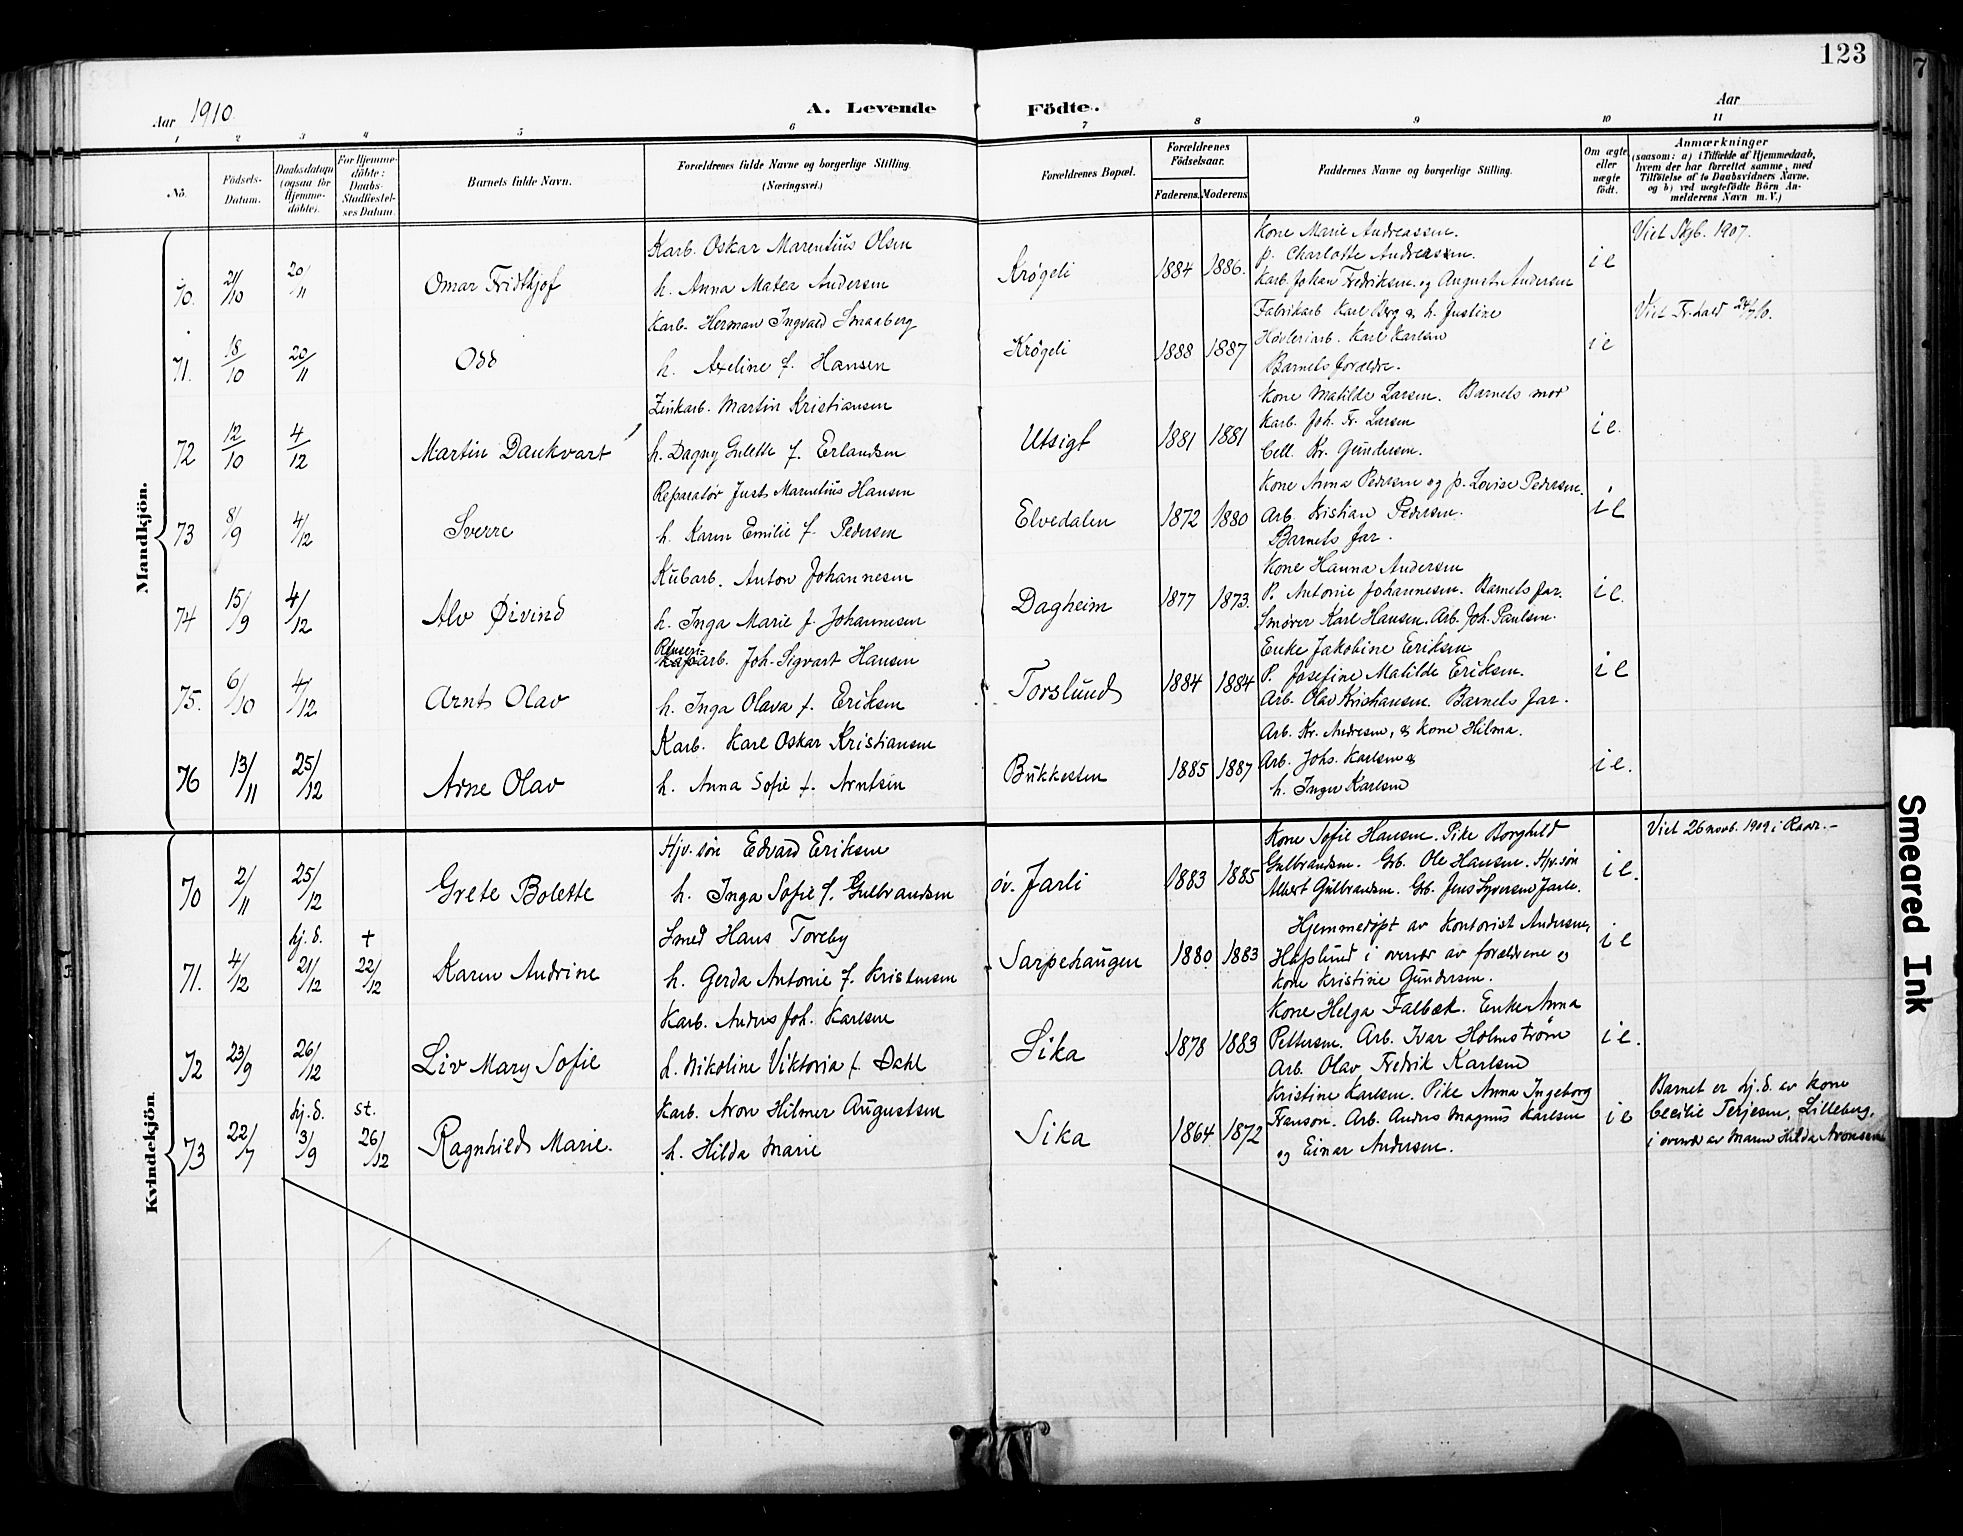 123
7
Aar 1910.
A. Levende Födte.
Aar
1 2 3 4 5 6 7 8 9 10 11
No.
Födsels-Datum.
Daabsdatum (ogsaa for Hjemme-döbte).
For Hjemme-döbte: Daabs-Stadfæstel-ses Datum.
Barnets fulde Navn.
Forældrenes fulde Navne og borgerlige Stilling.
(Næringsvei.)
Forældrenes Bopæl.
Forældrenes Födselsaar.
Faderens. Moderens.
Faddernes Navne og borgerlige Stilling.
Om ægte eller uægte födt.
Anmærkninger
(saasom: a) i Tilfælde af Hjemmedaab,
hvem der har forrettet samme, med
Tilföielse af to Daabsvidners Navne.
og b) ved uægtefödte Börn An-
melderens Navn m. V.)
Mandkjön.
Karb. Oskar Marentius Olsen
Kone Marie Andreassen.
Viet Skjb. 1907.
70. 21/10 20/11 Omar Fridtjof
h. Anna Mater Andersen
Krøgeli 1884 1886.
p. Charlotte Andreassen.
Karb. Johan Fredriksen. og August Andersen
i e
Karb. Herman Ingvald Smaaberg
Fabrikarb. Karl Berg & h. Justine
Viet Fr.hald 24/7 10.
71. 18/10 20/11 Odd
h. Axeline f. Hansen
Krøgeli 1888 1887
Høvleriarb. Karl Karlsen
Barnets forældre.
i e
Zinkarb. Martin Kristiansen
Kone Matilde Larsen. Barnets mor
72 12/10 4/12 Martin Dankvart
h. Dagny Gulette f. Erlandsen
Utsigt 1881 1881
Karb. Joh. Fr. Larsen
Cell. Kr. Gundersen.
i e.
Reparatør Just Marentius Hansen
Kone Anna Pedersen og p. Lovise Pedersen.
73 8/9 4/12 Sverre
h. Karen Emilie f. Pedersen
Elvedalen 1872 1880
Arb. Kristian Pedersen.
Barnets far.
i e
Kubarb. Anton Johannesen
Kone Hanna Andersen
74 15/9 4/12 Alv Øivind
h. Inga Marie f. Johannesen
Dagheim 1877 1873.
P. Antonie Johannesen. Barnets far.
Smører Karl Hansen. Arb. Joh. Paulsen.
i e.
Renseri-
arb. Joh. Sigvart Hansen
Enke Jakobine Eriksen
75. 6/10 4/12 Arnt Olav
h. Inga Olava f. Eriksen
Torslund 1884 1884
P. Josefine Matilde Eriksen.
Arb. Olav Kristiansen. Barnets far.
i e
Karb. Karl Oskar Kristiansen
Arb. Kr. Andresen, & Kone Hilma.
76 13/11 25/12 Arne Olav
h. Anna Sofie f. Arntsen
Bukkesten 1885 1887
Arb. Johs. Karlsen &
h. Inger Karlsen
i e.
Kvindekjön.
Hjv. søn Edvard Eriksen
Kone Sofie Hansen. Pike Borghild
Viet 26 novb. 1909 i Raade.-
70 2/11 25/12 Grete Bolette
h. Inga Sofie f. Gulbrandsen
øv. Jarli 1883 1885
Gulbrandsen. Gb. Ole Hansen. Hjv. søn
Albert Gulbrandsen. Gb. Jens Syversen Jarli.
i e.
Smed Hans Toreby
Hjemmedøpt av Kontorist Andersen,
71. 4/12 hj. d. 21/12 + 22/12 Karen Andrine
h. Gerda Antonie f. Kristensen
Sarpehaugen 1880 1883
Hafslund i overvær av forældrene og
Kone Kristine Gundersen.
i e
Karb. Anders Joh. Karlsen
Kone Helga Falbæk. Enke Anna
72 23/9 26/12 Liv Mary Sofie
h. Nikoline Viktoria f. Dahl
Sika 1878 1883
Pettersen. Arb. Ivar Holmstrøm
Arb. Olav Fredrik Karlsen
i e.
Karb. Aron Hilmer Augustsen
Kristine Karlsen. Pike Anna Ingeborg
Barnet er hj. d. av kone
73 22/7 hj. d. 3/9 st. 26/12 Ragnhild Marie.
h. Hilda Marie
Sika 1864 1872
Franson. Arb. Anders Magnus Karlsen
og Einar Andersen.
i e
Cecilie Terjesen, Lilleberg,
i overvær av Maren Hilda Aronsen
Smeared Ink